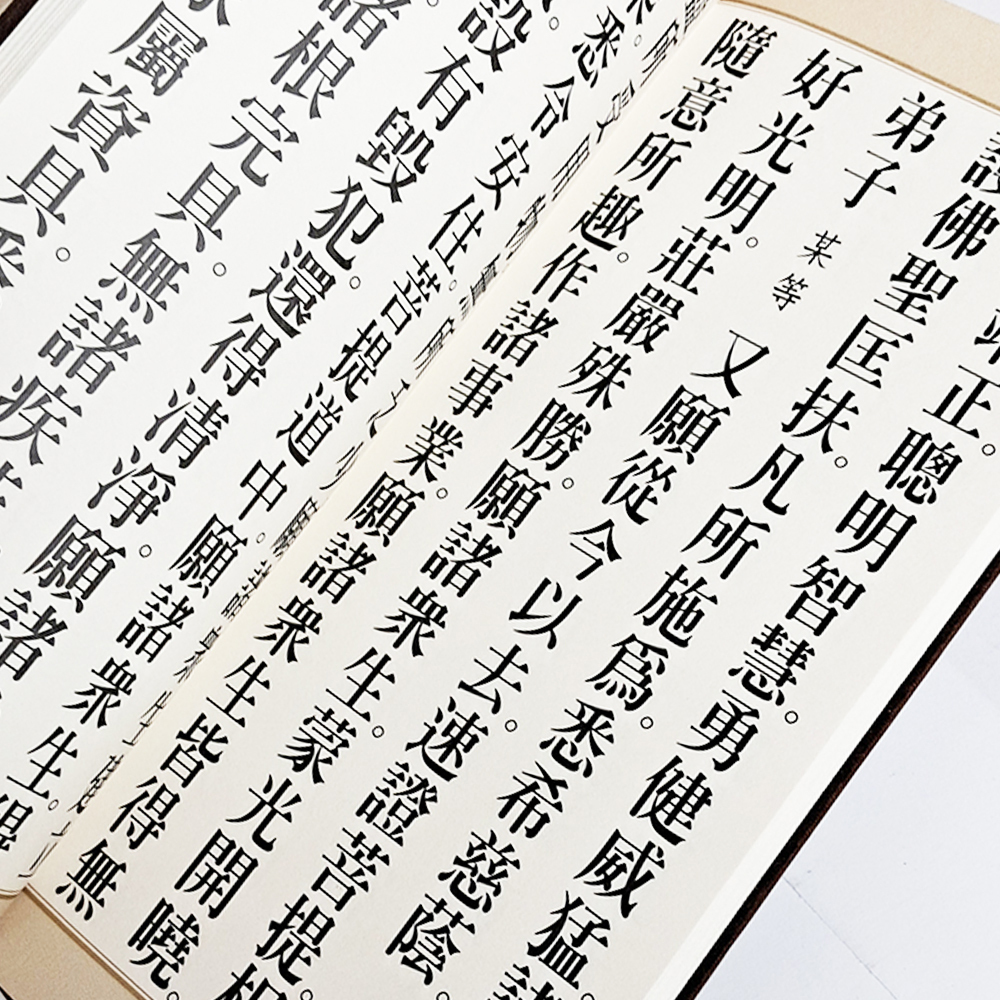 正。聰明智慧。勇健威猛。諸
佛聖匡扶。凡所施爲。悉希慈蔭。
弟子某等又願從今以去。速證菩提。
好光明。莊嚴殊勝。願諸衆生。蒙光開曉。
隨意所趣。作諸事業。願諸衆生皆得無
悉令安住。菩提道中。願諸衆生。
設有毀犯。還得清淨。願諸
諸根完具。無諸疾
屬資具。